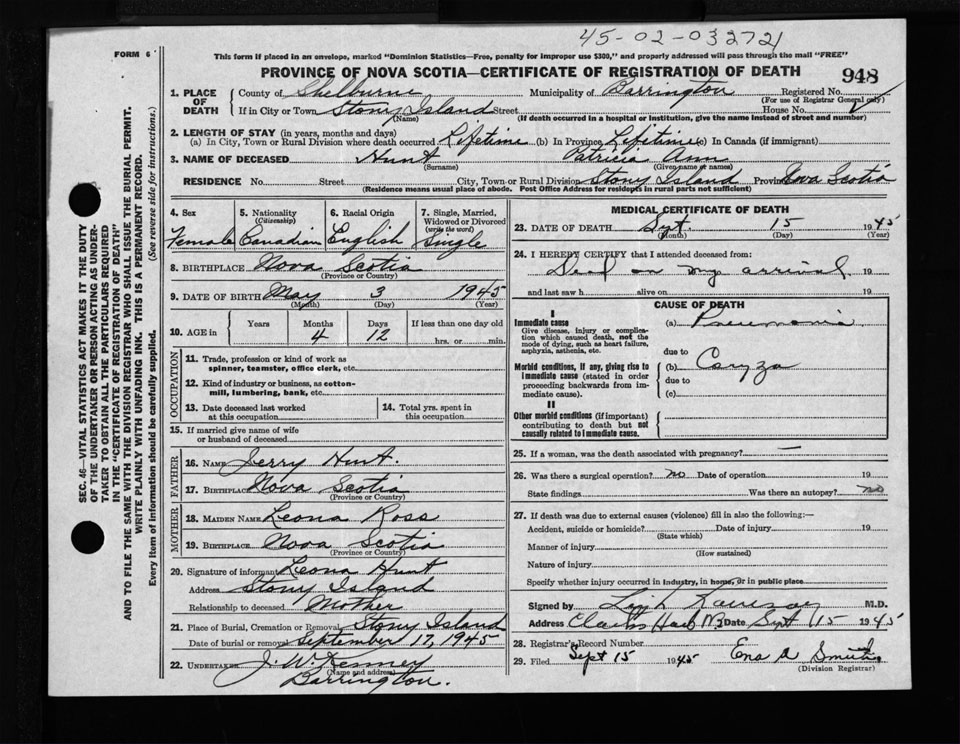 45-02-032721
FORM 6
This form if placed in an envelope, marked "Dominion Statistics—Free, penalty for improper use $300," and properly addressed will pass through the mail "FREE"
PROVINCE OF NOVA SCOTIA—CERTIFICATE OF REGISTRATION OF DEATH
948
1. PLACE OF DEATH County of Shelburne Municipality of Barrington Registered No.
(For use of Registrar General only)
If in City or Town Stony Island Street House No.
(Name) (If death occurred in a hospital or institution, give the name instead of street and number)
2. LENGTH OF STAY (in years, months and days)
(a) In City, Town or Rural Division where death occurred Lifetime (b) In Province Lifetime (c) In Canada (if immigrant)
3. NAME OF DECEASED Hunt Patricia Ann
(Surname) (Given name or names)
RESIDENCE No. Street City, Town or Rural Division Stony Island Province Nova Scotia
(Residence means usual place of abode. Post Office Address for residents in rural parts not sufficient)
SEC. 46—VITAL STATISTICS ACT MAKES IT THE DUTY
OF THE UNDERTAKER OR PERSON ACTING AS UNDER-
TAKER TO OBTAIN ALL THE PARTICULARS REQUIRED
IN THE "CERTIFICATE OF REGISTRATION OF DEATH"
AND TO FILE THE SAME WITH THE DIVISION REGISTRAR WHO SHALL ISSUE THE BURIAL PERMIT.
WRITE PLAINLY WITH UNFADING INK. THIS IS A PERMANENT RECORD.
Every item of information should be carefully supplied. (See reverse side for instructions.)
4. Sex 5. Nationality 6. Racial Origin 7. Single, Married,
(Citizenship) Widowed or Divorced
(write the word)
Female Canadian English Single
8. BIRTHPLACE Nova Scotia
(Province or Country)
9. DATE OF BIRTH May 3 1945
(Month) (Day) (Year)
10. AGE in Years Months Days If less than one day old
4 12 hrs. or min.
OCCUPATION
11. Trade, profession or kind of work as
spinner, teamster, office clerk, etc.
12. Kind of industry or business, as cotton-
mill, lumbering, bank, etc.
13. Date deceased last worked
at this occupation
14. Total yrs. spent in
this occupation
15. If married give name of wife
or husband of deceased
FATHER
16. NAME Jerry Hunt.
17. BIRTHPLACE Nova Scotia
(Province or Country)
MOTHER
18. MAIDEN NAME Leona Ross
19. BIRTHPLACE Nova Scotia
(Province or Country)
20. Signature of informant Leona Hunt
Address Stony Island
Relationship to deceased Mother
21. Place of Burial, Cremation or Removal Stony Island
Date of burial or removal September 17, 1945
22. UNDERTAKER J. W. Kenney
(Name and address)
Barrington.
MEDICAL CERTIFICATE OF DEATH
23. DATE OF DEATH Sept. 15 1945
(Month) (Day) (Year)
24. I HEREBY CERTIFY that I attended deceased from:
Dead on my arrival 19
and last saw h alive on 19
CAUSE OF DEATH
I
Immediate cause (a) Pneumonia
Give disease, injury or complica-
tion which caused death, not the
mode of dying, such as heart failure,
asphyxia, asthenia, etc.
due to
Morbid conditions, if any, giving rise to
immediate cause (stated in order
proceeding backwards from im-
mediate cause).
(b) Coryza
due to
(c)
II
Other morbid conditions (if important)
contributing to death but not
causally related to immediate cause.
25. If a woman, was the death associated with pregnancy? —
26. Was there a surgical operation? no Date of operation 19
State findings Was there an autopsy? no
27. If death was due to external causes (violence) fill in also the following:—
Accident, suicide or homicide? Date of injury 19
(State which)
Manner of injury
(How sustained)
Nature of injury
Specify whether injury occurred in industry, in home, or in public place
Signed by M.D.
Address Date Sept 15 1945
28. Registrar's Record Number
29. Filed Sept 15 1945 Ena A Smith
(Division Registrar)